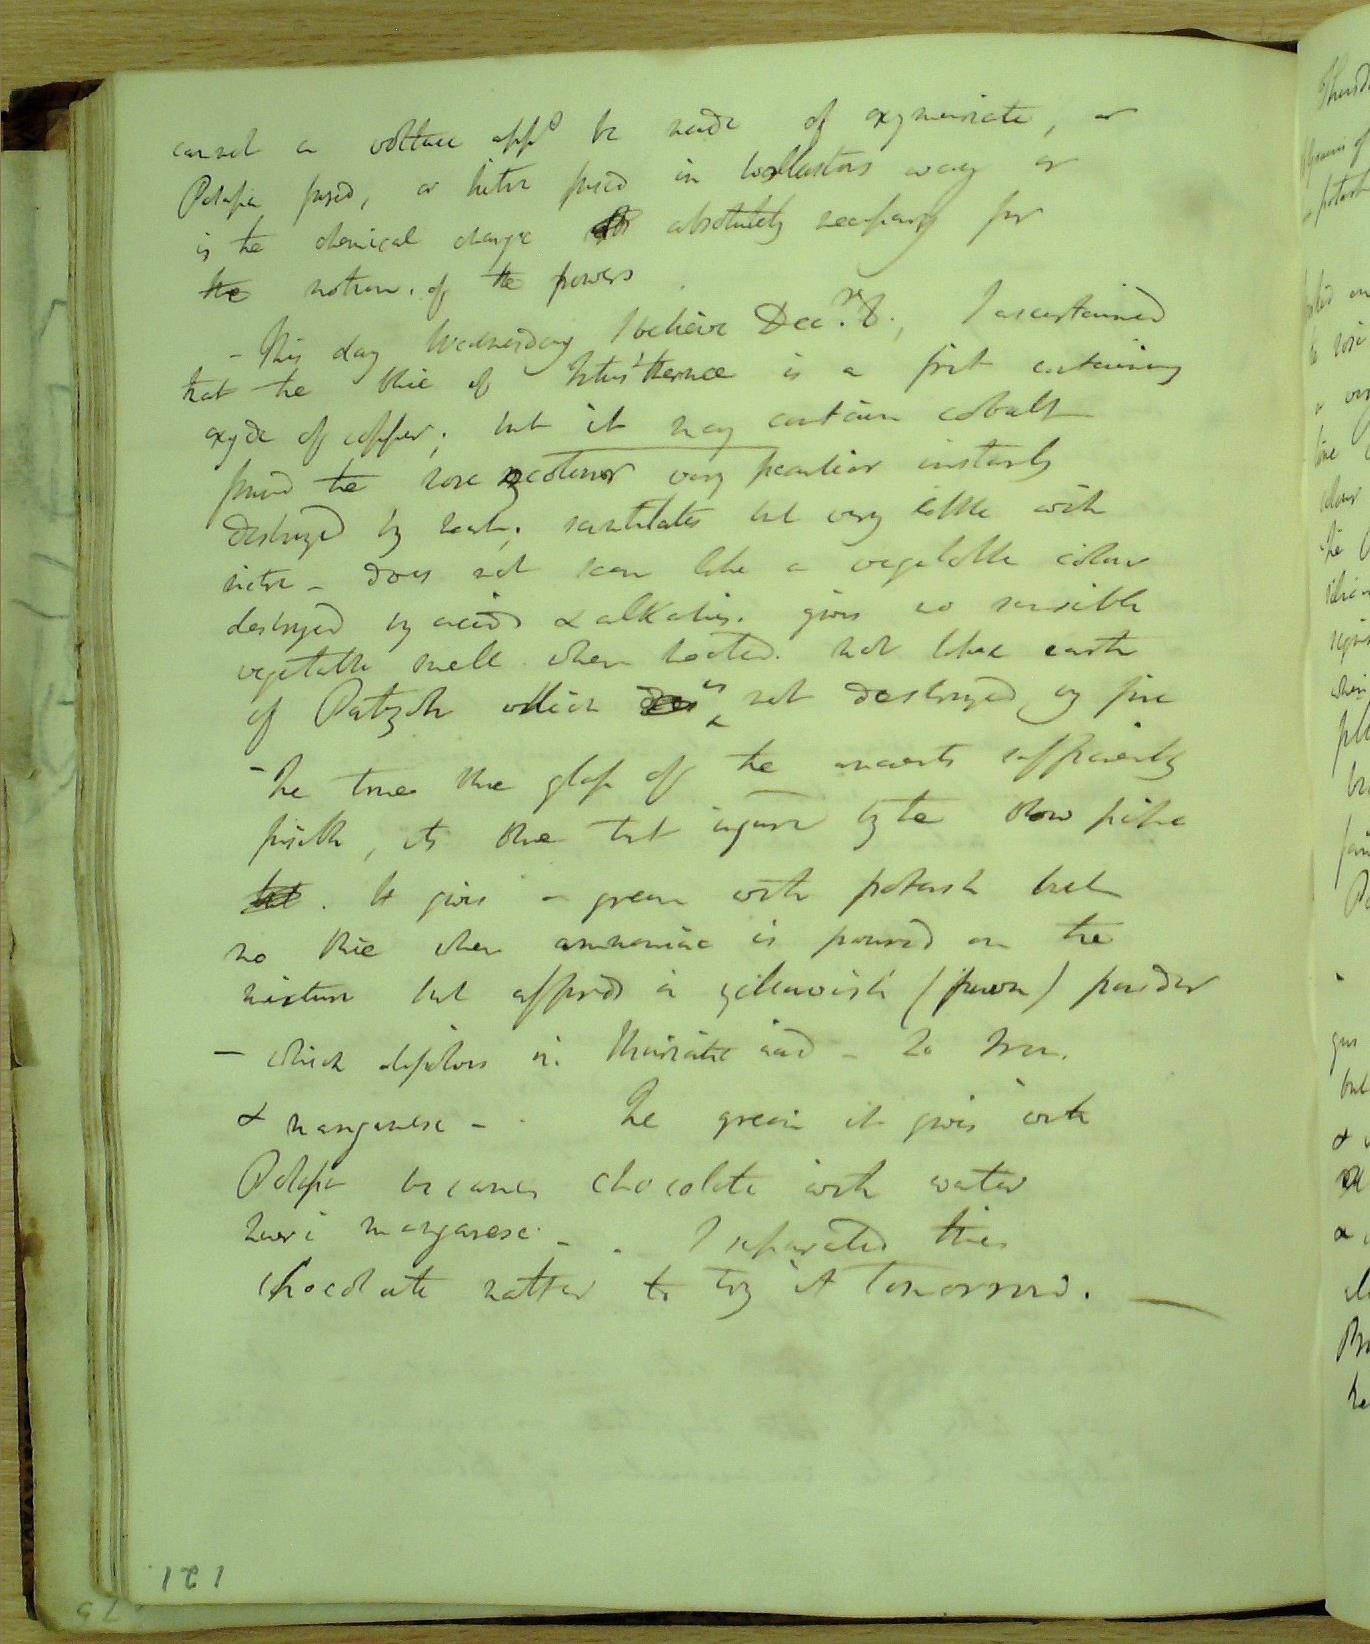 cannot a voltaic app.s be made of oxymuriate, or
Potassa fused, or nitre fused in Wollastons way or
is the chemical change absolutely necessary for
the motion of the powers
- This day Wednesday I believe Decr. 8., I ascertained
that the blue of Titus' thermae is a frit containing
oxyde of copper; but it may contain cobalt
found the rose colour very peculiar instantly
destroyed by heat; scintillates but very little with
nitre - does not seem like a vegetable colour
destroyed by acids & alkalies. gives no sensible
vegetable smell when heated. not like earth
of which is not destroyed by fire
- The true blue glass of the ancients sufficiently
fusible, its blue tint injured by the blow pipe
but. It gives a green with potash but
no blue when ammoniac is poured on the
mixture but affords a yellowish (fawn) powder
- which dissolves in Muriatic acid - To Iron.
& manganese - The green it gives with
Potassa becomes chocolate with water
manganese - . I separated this
chocolate matter to try it tomorrow. —
121